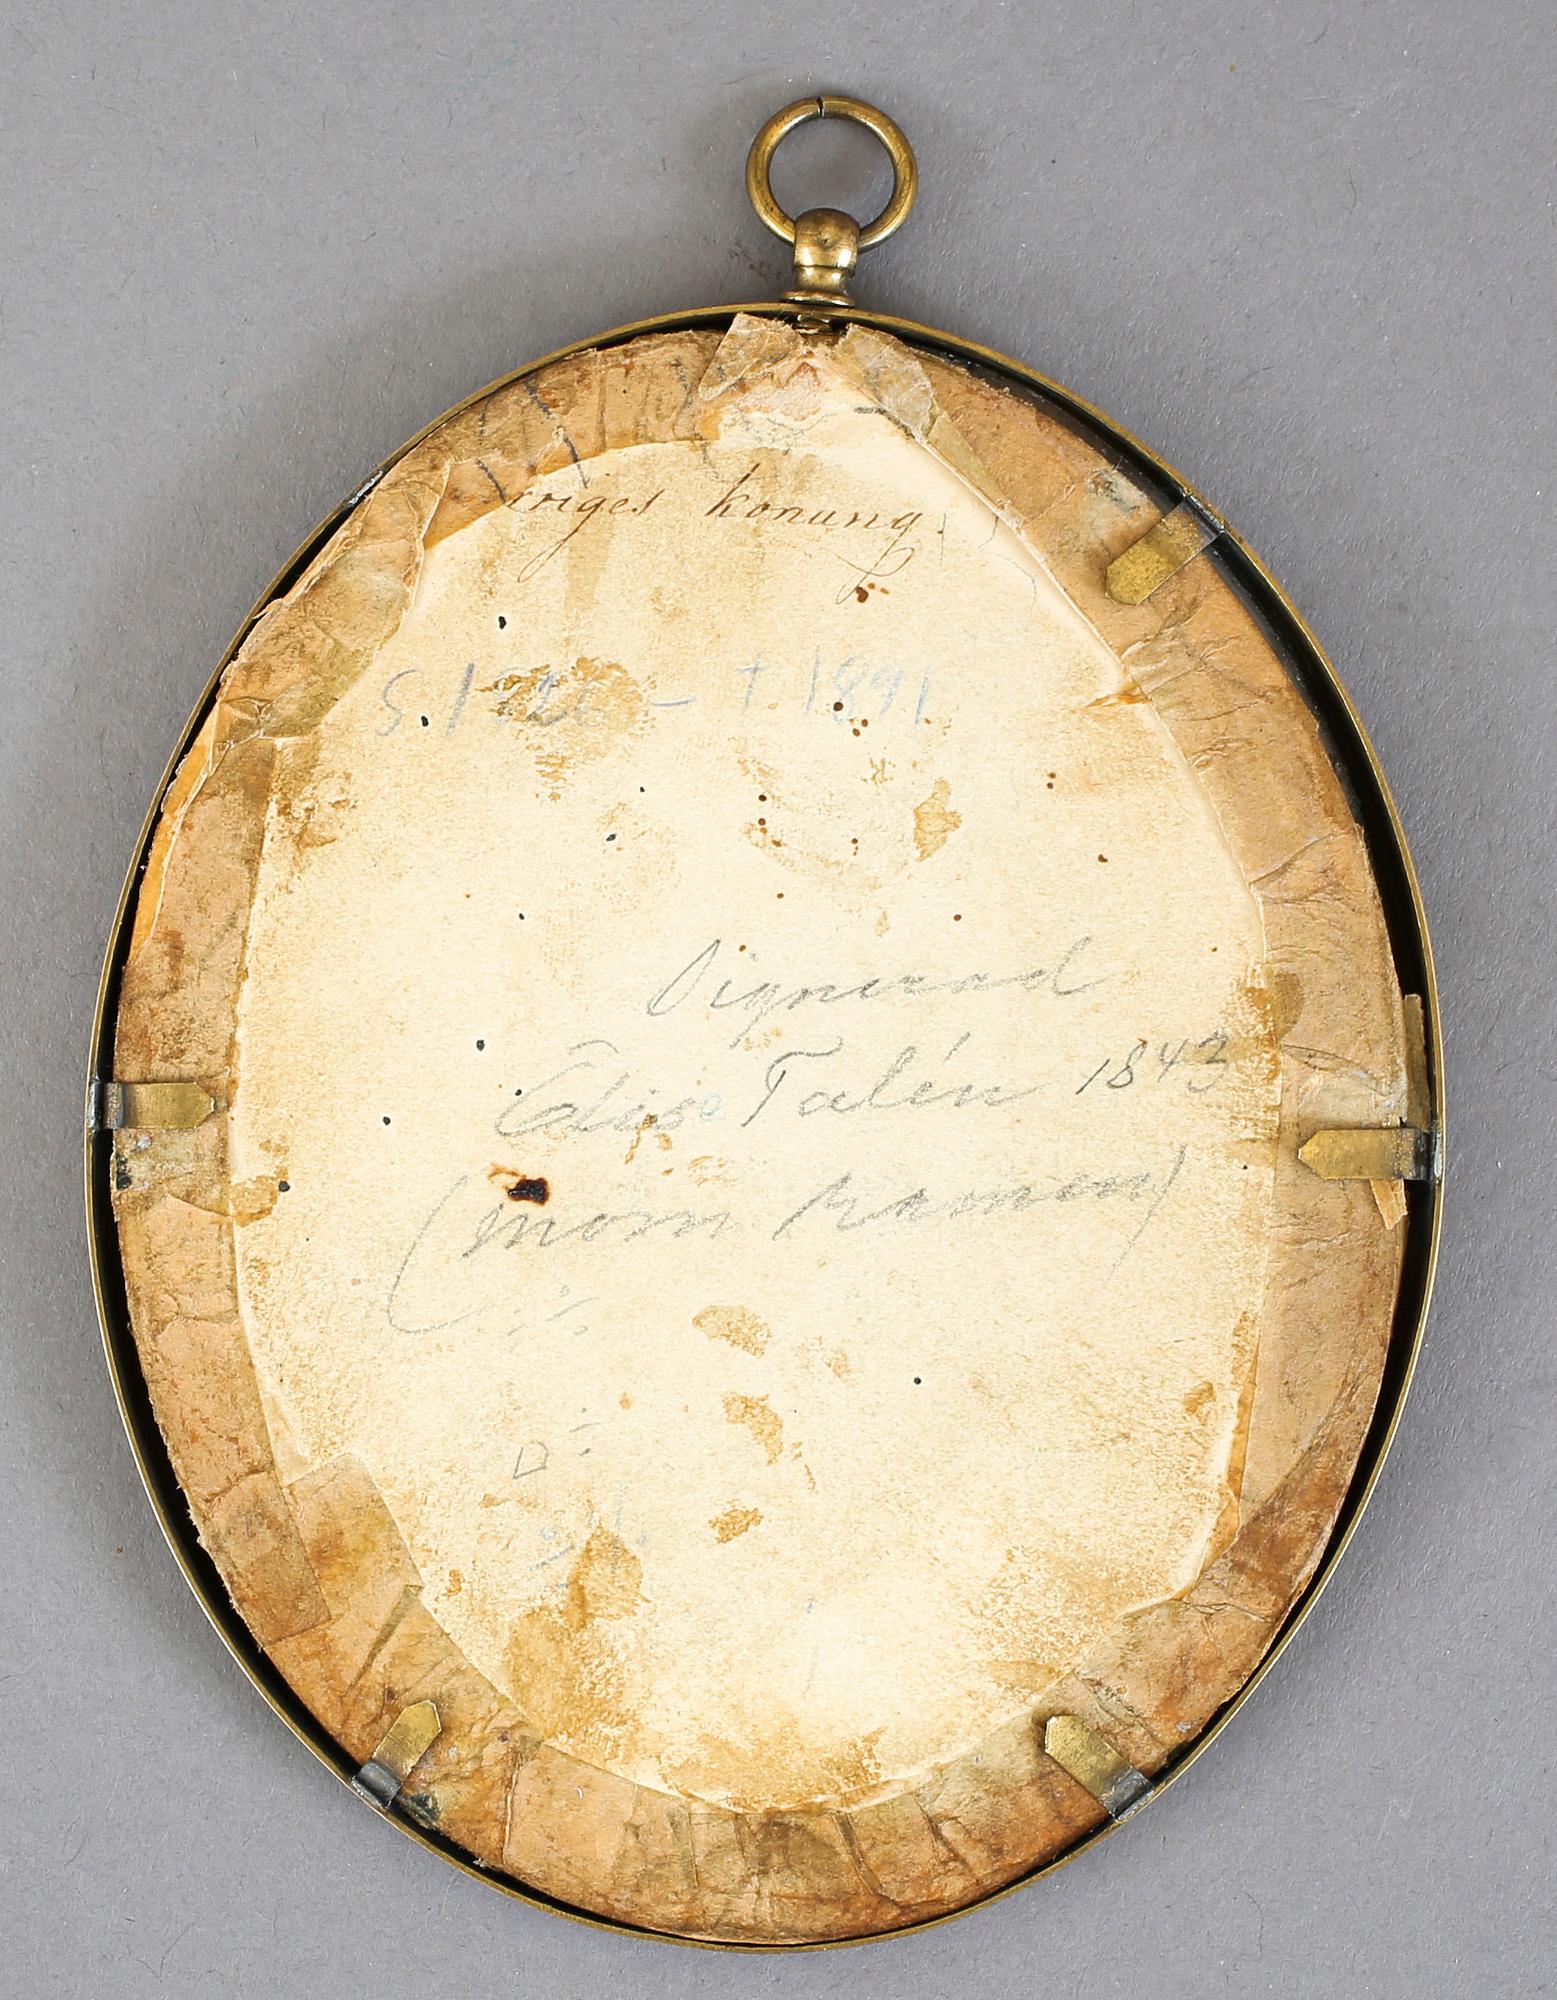 eriges konung.
S. 1826 – † 1891
Signerad
Elise Talén 1843
(inom ramen)